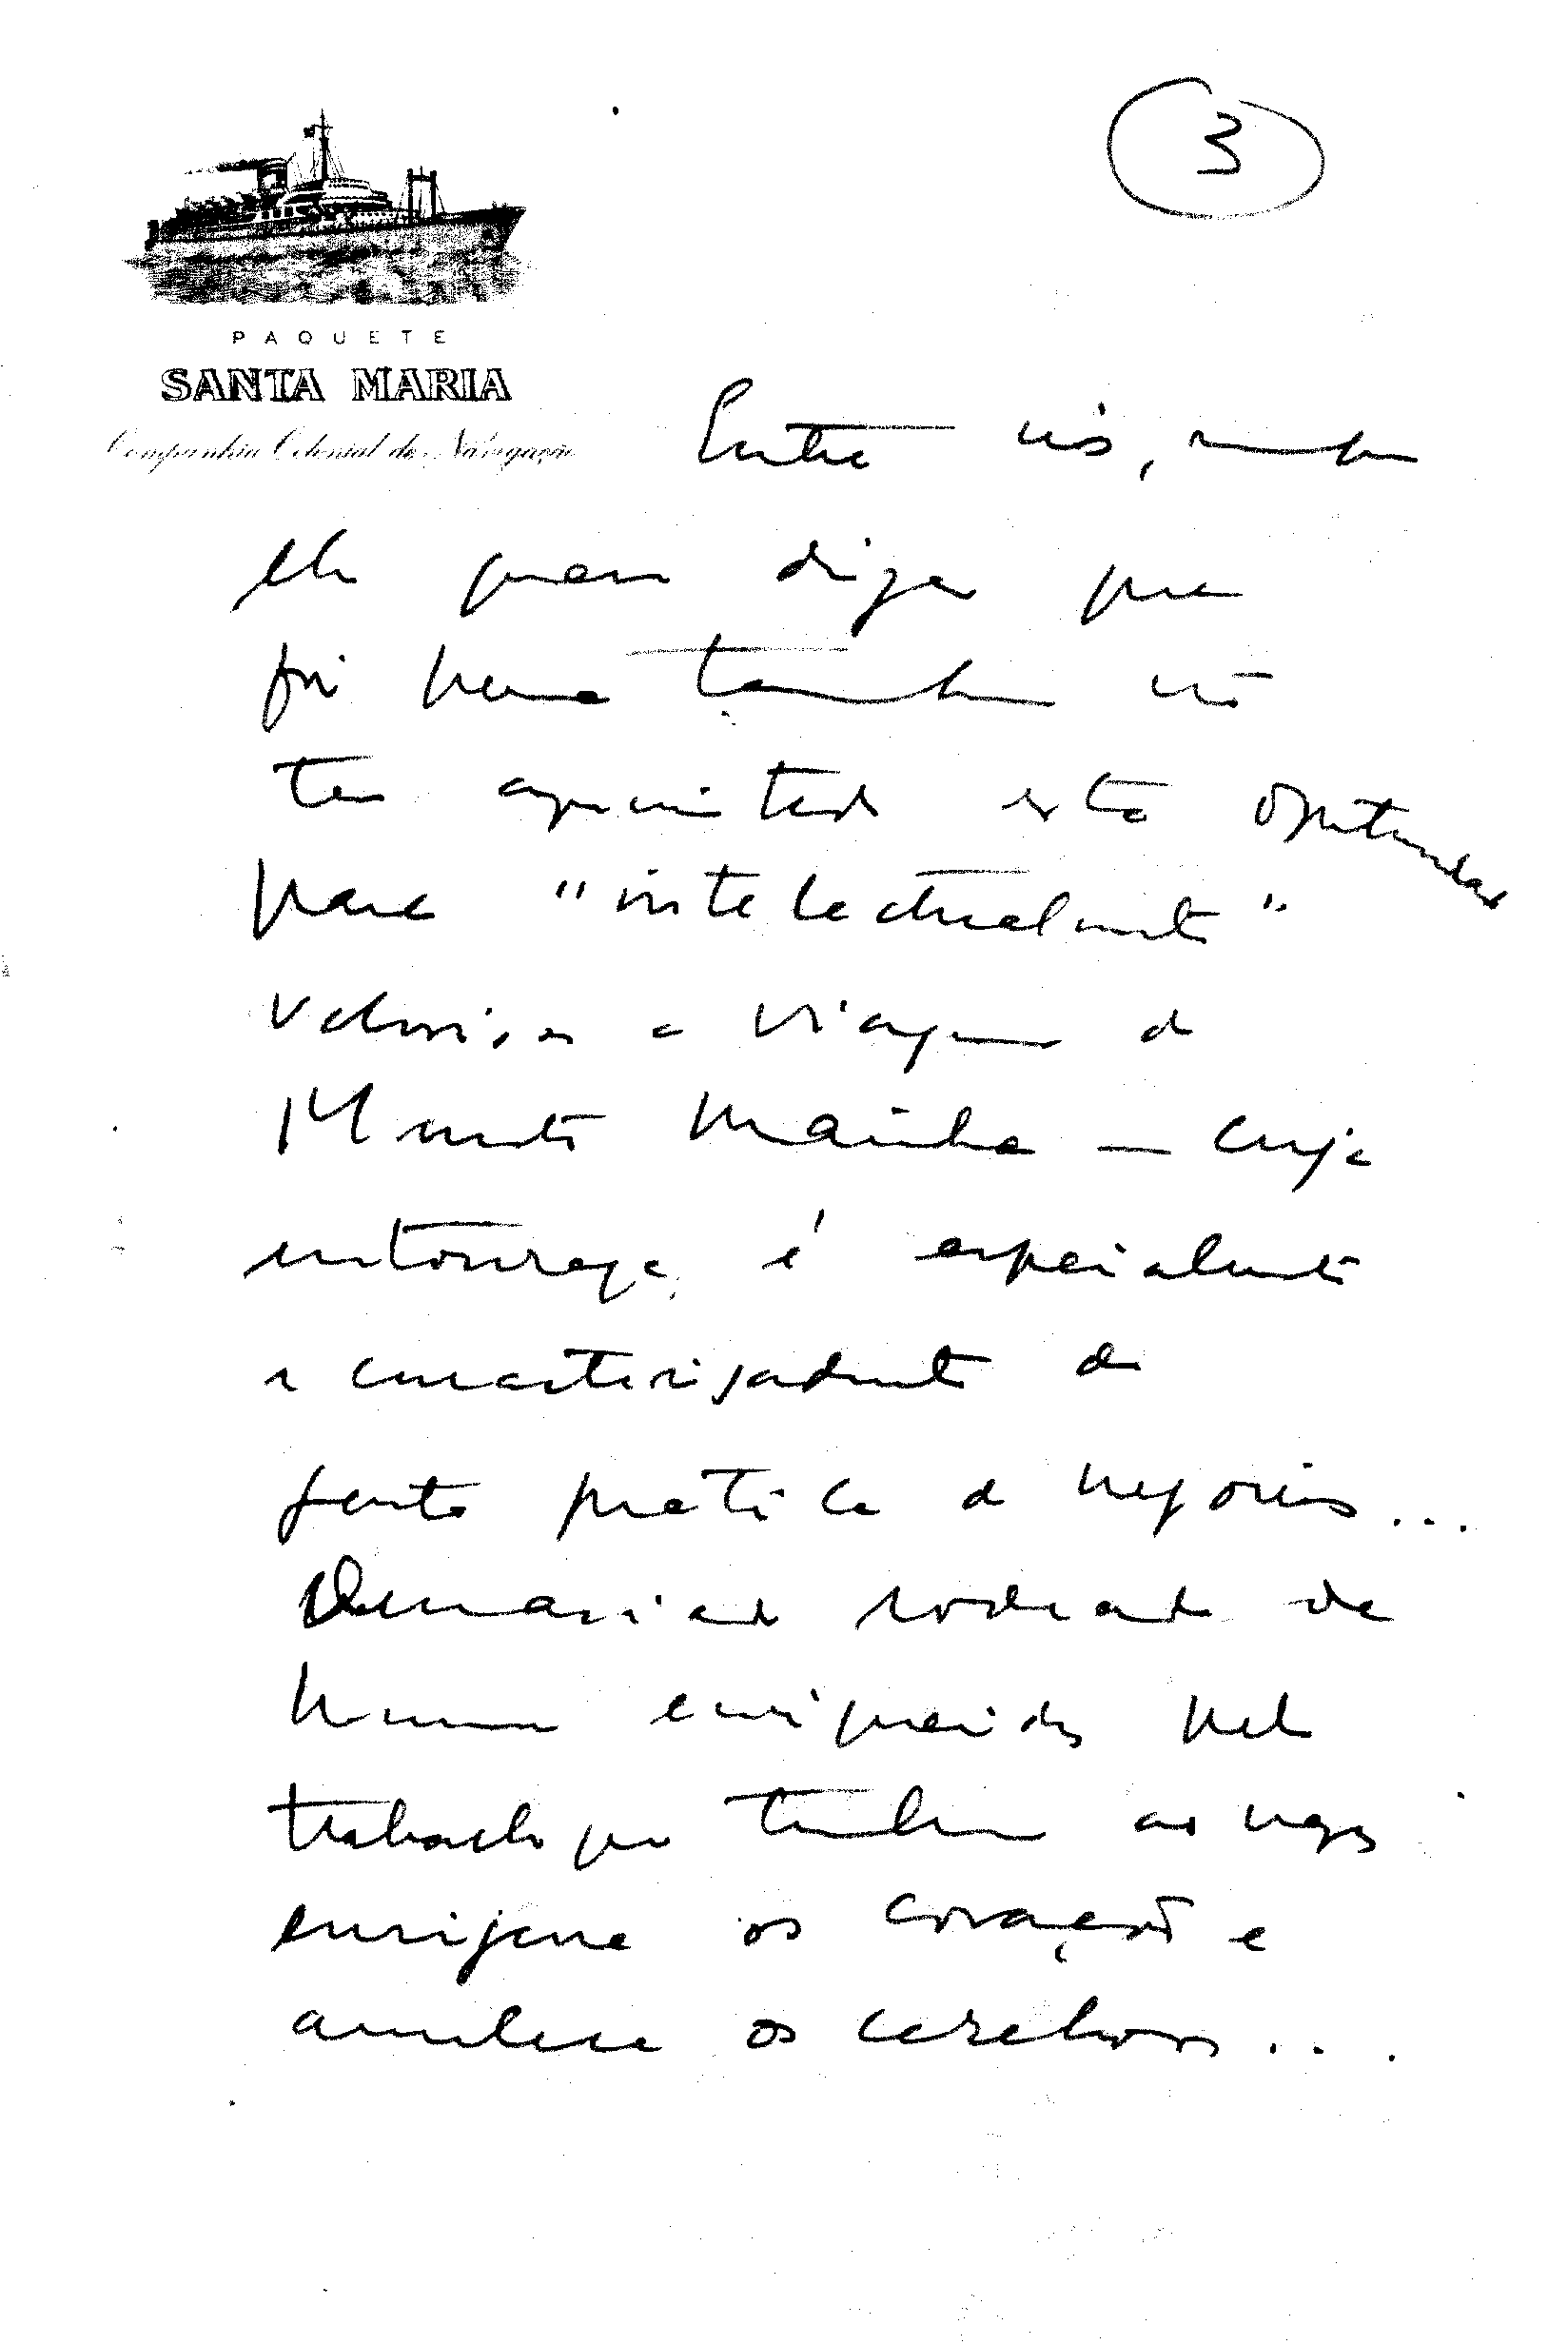 3
PAQUETE
SANTA MARIA
Companhia Colonial de Navegação
Entre nós,
quero dizer que
foi pena também não
ter aproveitado esta oportunidade
para "intelectualmente"
valorizar a viagem de
Monte Mainha — cuja
entourage é especialmente
e caracterizadamente de
gente prática de negócios...
Demasiado rodeado de
homens enriquecidos pelo
trabalho que também as vezes
enrijece os corações e
amolece os cerebros...